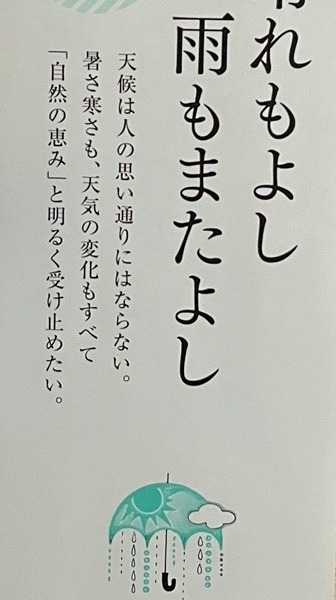 晴れもよし
雨もまたよし
天候は人の思い通りにはならない。
暑さ寒さも、天気の変化もすべて
「自然の恵み」と明るく受け止めたい。